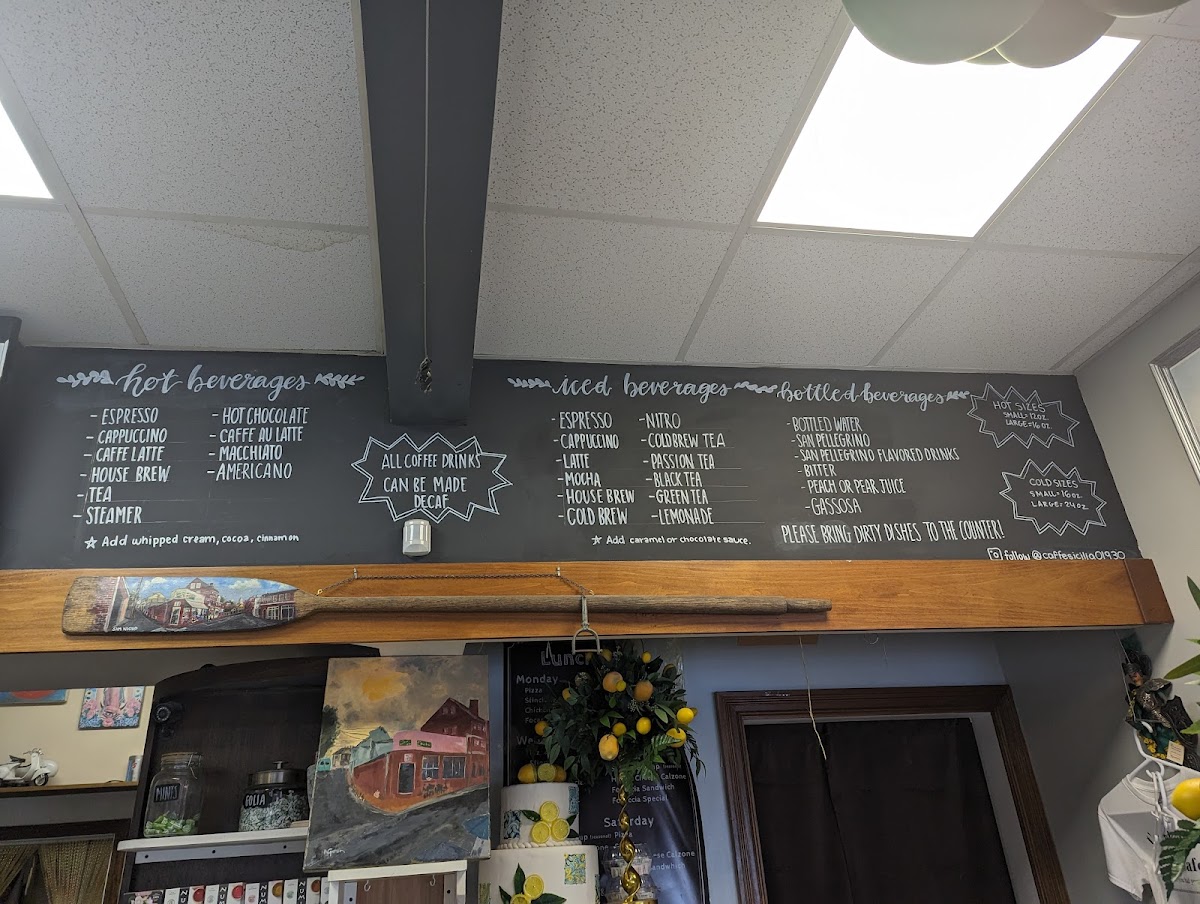 hot beverages
- ESPRESSO
- CAPPUCCINO
- CAFFE LATTE
- HOUSE BREW
- TEA
- STEAMER
- HOT CHOCOLATE
- CAFFE AU LATTE
- MACCHIATO
- AMERICANO
☆ Add whipped cream, cocoa, cinnamon
ALL COFFEE DRINKS
CAN BE MADE
DECAF
iced beverages
- ESPRESSO
- CAPPUCCINO
- LATTE
- MOCHA
- HOUSE BREW
- COLD BREW
- NITRO
- COLDBREW TEA
- PASSION TEA
- BLACK TEA
- GREEN TEA
- LEMONADE
☆ Add caramel or chocolate sauce.
bottled beverages
- BOTTLED WATER
- SAN PELLEGRINO
- SAN PELLEGRINO FLAVORED DRINKS
- BITTER
- PEACH OR PEAR JUICE
- GASSOSA
PLEASE BRING DIRTY DISHES TO THE COUNTER!
HOT SIZES
SMALL=12OZ.
LARGE=16 OZ.
COLD SIZES
SMALL=16OZ
LARGE=24OZ
follow @caffesicilia01930
MINTS
FOLIA
Monday
Pizza
Calzone
Sandwich
Focaccia Special
Saturday
Pizza
-se Calzone